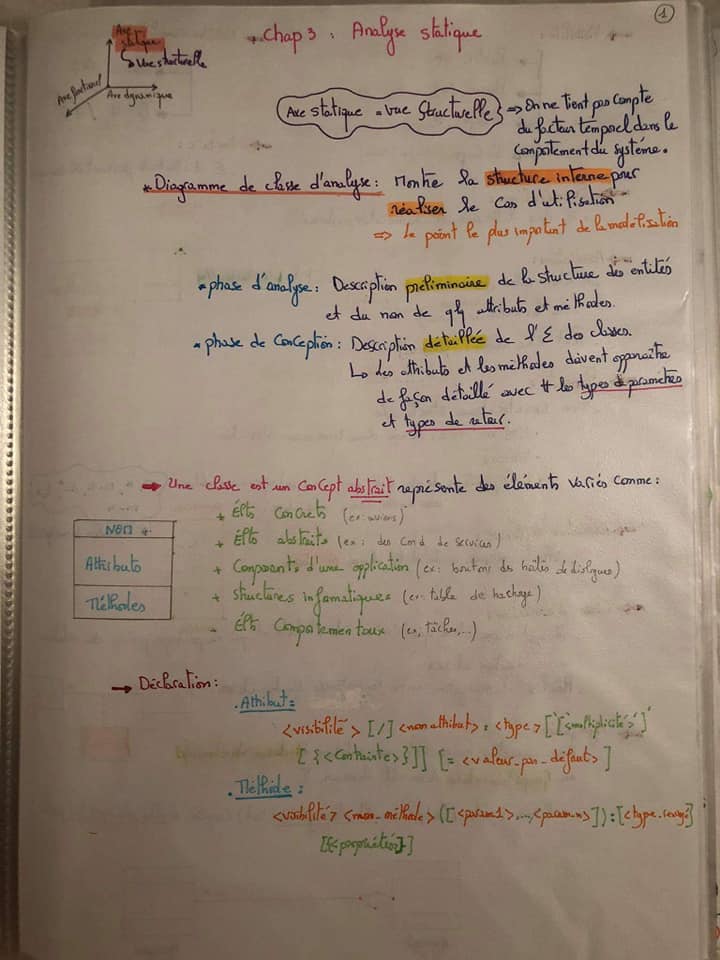 1
Axe
statique
↳ Vue structurelle
Axe fonctionnel
Axe dynamique
* Chap 3 : Analyse statique
Axe statique = vue Structurelle
=> On ne tient pas compte
du facteur temporel dans le
comportement du système.
* Diagramme de classe d'analyse : Montre la structure interne pour
réaliser le cas d'utilisation
=> Le point le plus important de la modélisation
* phase d'analyse : Description preliminaire de la structure des entités
et du nom de qlq attributs et méthodes.
* phase de Conception : Description détaillée de l'E des classes.
↳ Les attributs et les méthodes doivent apparaître
de façon détaillé avec # les types de paramètres
et types de retour.
→ Une classe est un concept abstrait représente des éléments variés comme :
NOM
Attributs
Méthodes
+ Élts concrets (ex: avions)
+ Élts abstraits (ex : des cmd de services)
+ Composants d'une application (ex: boutons des boîtes de dialogues)
+ Structures informatiques (ex: table de hachage)
+ Élts Comportementaux (ex, tâches,...)
→ Déclaration :
. Attribut :
<visibilité> [/] <nom attribut> : <type> ['['<multiplicité>']'
[{<Contrainte>}]] [= <valeur_par_défaut>]
. Méthode :
<visibilité> <nom_méthode> ([<param1>,...,<param n>]) : [<type_renvoyé>]
[{<propriétés>}]